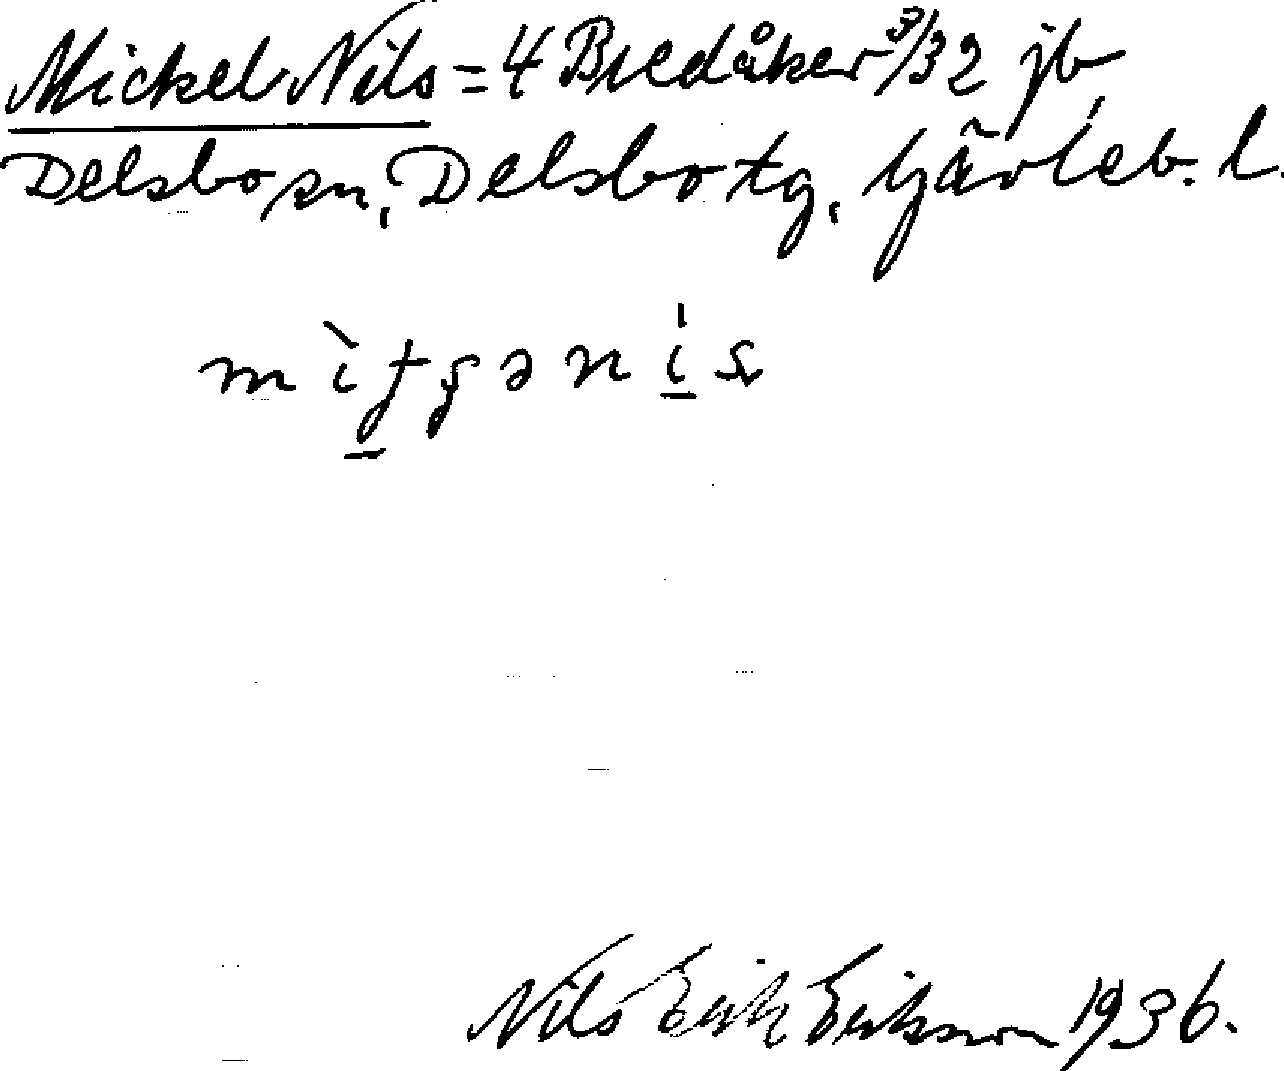 Mickel Nils = 4 Bredåker 3/32 jb,
Delsbo sn, Delsbo tg, Gävleb. l.
Nils Erik Erikson 1936.